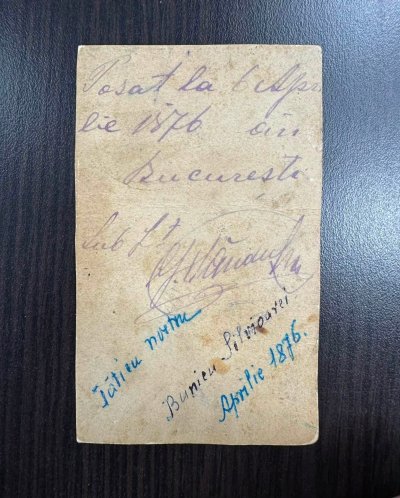 Posat la 6 Apri
lie 1876 în
Bucuresti
Sub Lt
Tăticu nostru
Bunicu Silvioarei
Aprilie 1876.